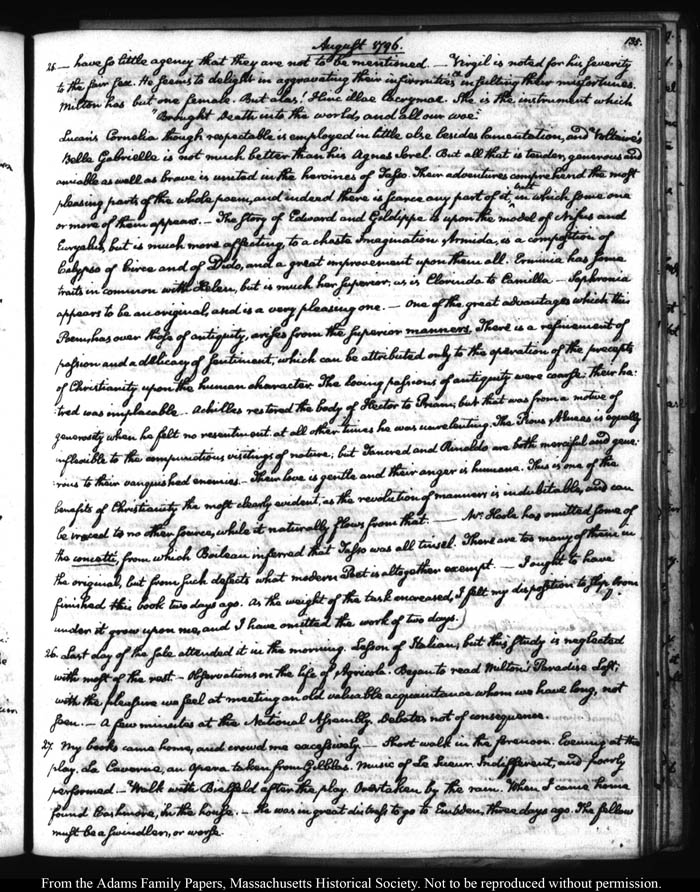 August 1796.
135.
25. — have so little agency that they are not to be mentioned. — Virgil is noted for his severity
to the fair sex. He seems to delight in aggravating their infirmities & insulting their misfortunes.
Milton has but one female. But alas! Hinc illae lacrymae. She is the instrument which
"Brought Death into the world, and all our woe."
Lucan's Cornelia though respectable is employed in little else besides lamentation, and Voltaire's
Belle Gabrielle is not much better than his Agnes Sorel. But all that is tender, generous and
amiable as well as brave is united in the heroines of Tasso. Their adventures comprehend the most
pleasing parts of the whole poem, and indeed there is scarce any part of it, but in which some one
or more of them appears. — The story of Edward and Gildippe is upon the model of Nisus and
Euryalus, but is much more affecting, to a chaste Imagination. Armida, is a composition of
Calypso of Circe and of Dido, and a great improvement upon them all. Erminia has some
traits in common with Helen, but is much her superior, as is Clorinda to Camilla — Sophronia
appears to be an original, and is a very pleasing one. — One of the great advantages which this
Poem has over those of antiquity, arises from the superior manners. There is a refinement of
passion and a delicacy of sentiment, which can be attributed only to the operation of the precepts
of Christianity upon the human character. The loving passions of antiquity were coarse: their ha-
tred was implacable. Achilles restored the body of Hector to Priam; but that was from a motive of
generosity when he felt no resentment at all other times he was unrelenting. The Pious Æneas is equally
inflexible to the compunctious visitings of nature; but Tancred and Rinaldo are both merciful and gene-
rous to their vanquished enemies. Their love is gentle and their anger is humane. This is one of the
benefits of Christianity the most clearly evident, as the revolution of manners is indubitable, and can
be traced to no other source, while it naturally flows from that. — Mr. Hoole has omitted some of
the concetti, from which Boileau inferred that Tasso was all tinsel. There are too many of them in
the original, but from such defects what modern Poet is altogether exempt. — I ought to have
finished this book two days ago. As the weight of the task encreased, I felt my disposition to slip from
under it grow upon me, and I have omitted the work of two days.
26. Last day of the sale attended it in the morning. Lesson of Italian; but this study is neglected
with most of the rest — Observations on the life of Agricola. Began to read Milton's Paradise Lost;
with the pleasure we feel at meeting an old valuable acquaintance whom we have long, not
seen. — A few minutes at the National Assembly. Debates not of consequence.
27. My books came home, and crowd me excessively. — Short walk in the forenoon. Evening at the
play. La Caverne, an opera taken from Gil Blas. Music of Le Sueur. Indifferent, and poorly
performed — Walk with Bielfeld after the play. Overtaken by the rain. When I came home
found Cashmore, in the house. — He was in great distress to go to Embden, three days ago. The fellow
must be a swindler, or worse.
From the Adams Family Papers, Massachusetts Historical Society. Not to be reproduced without permission.